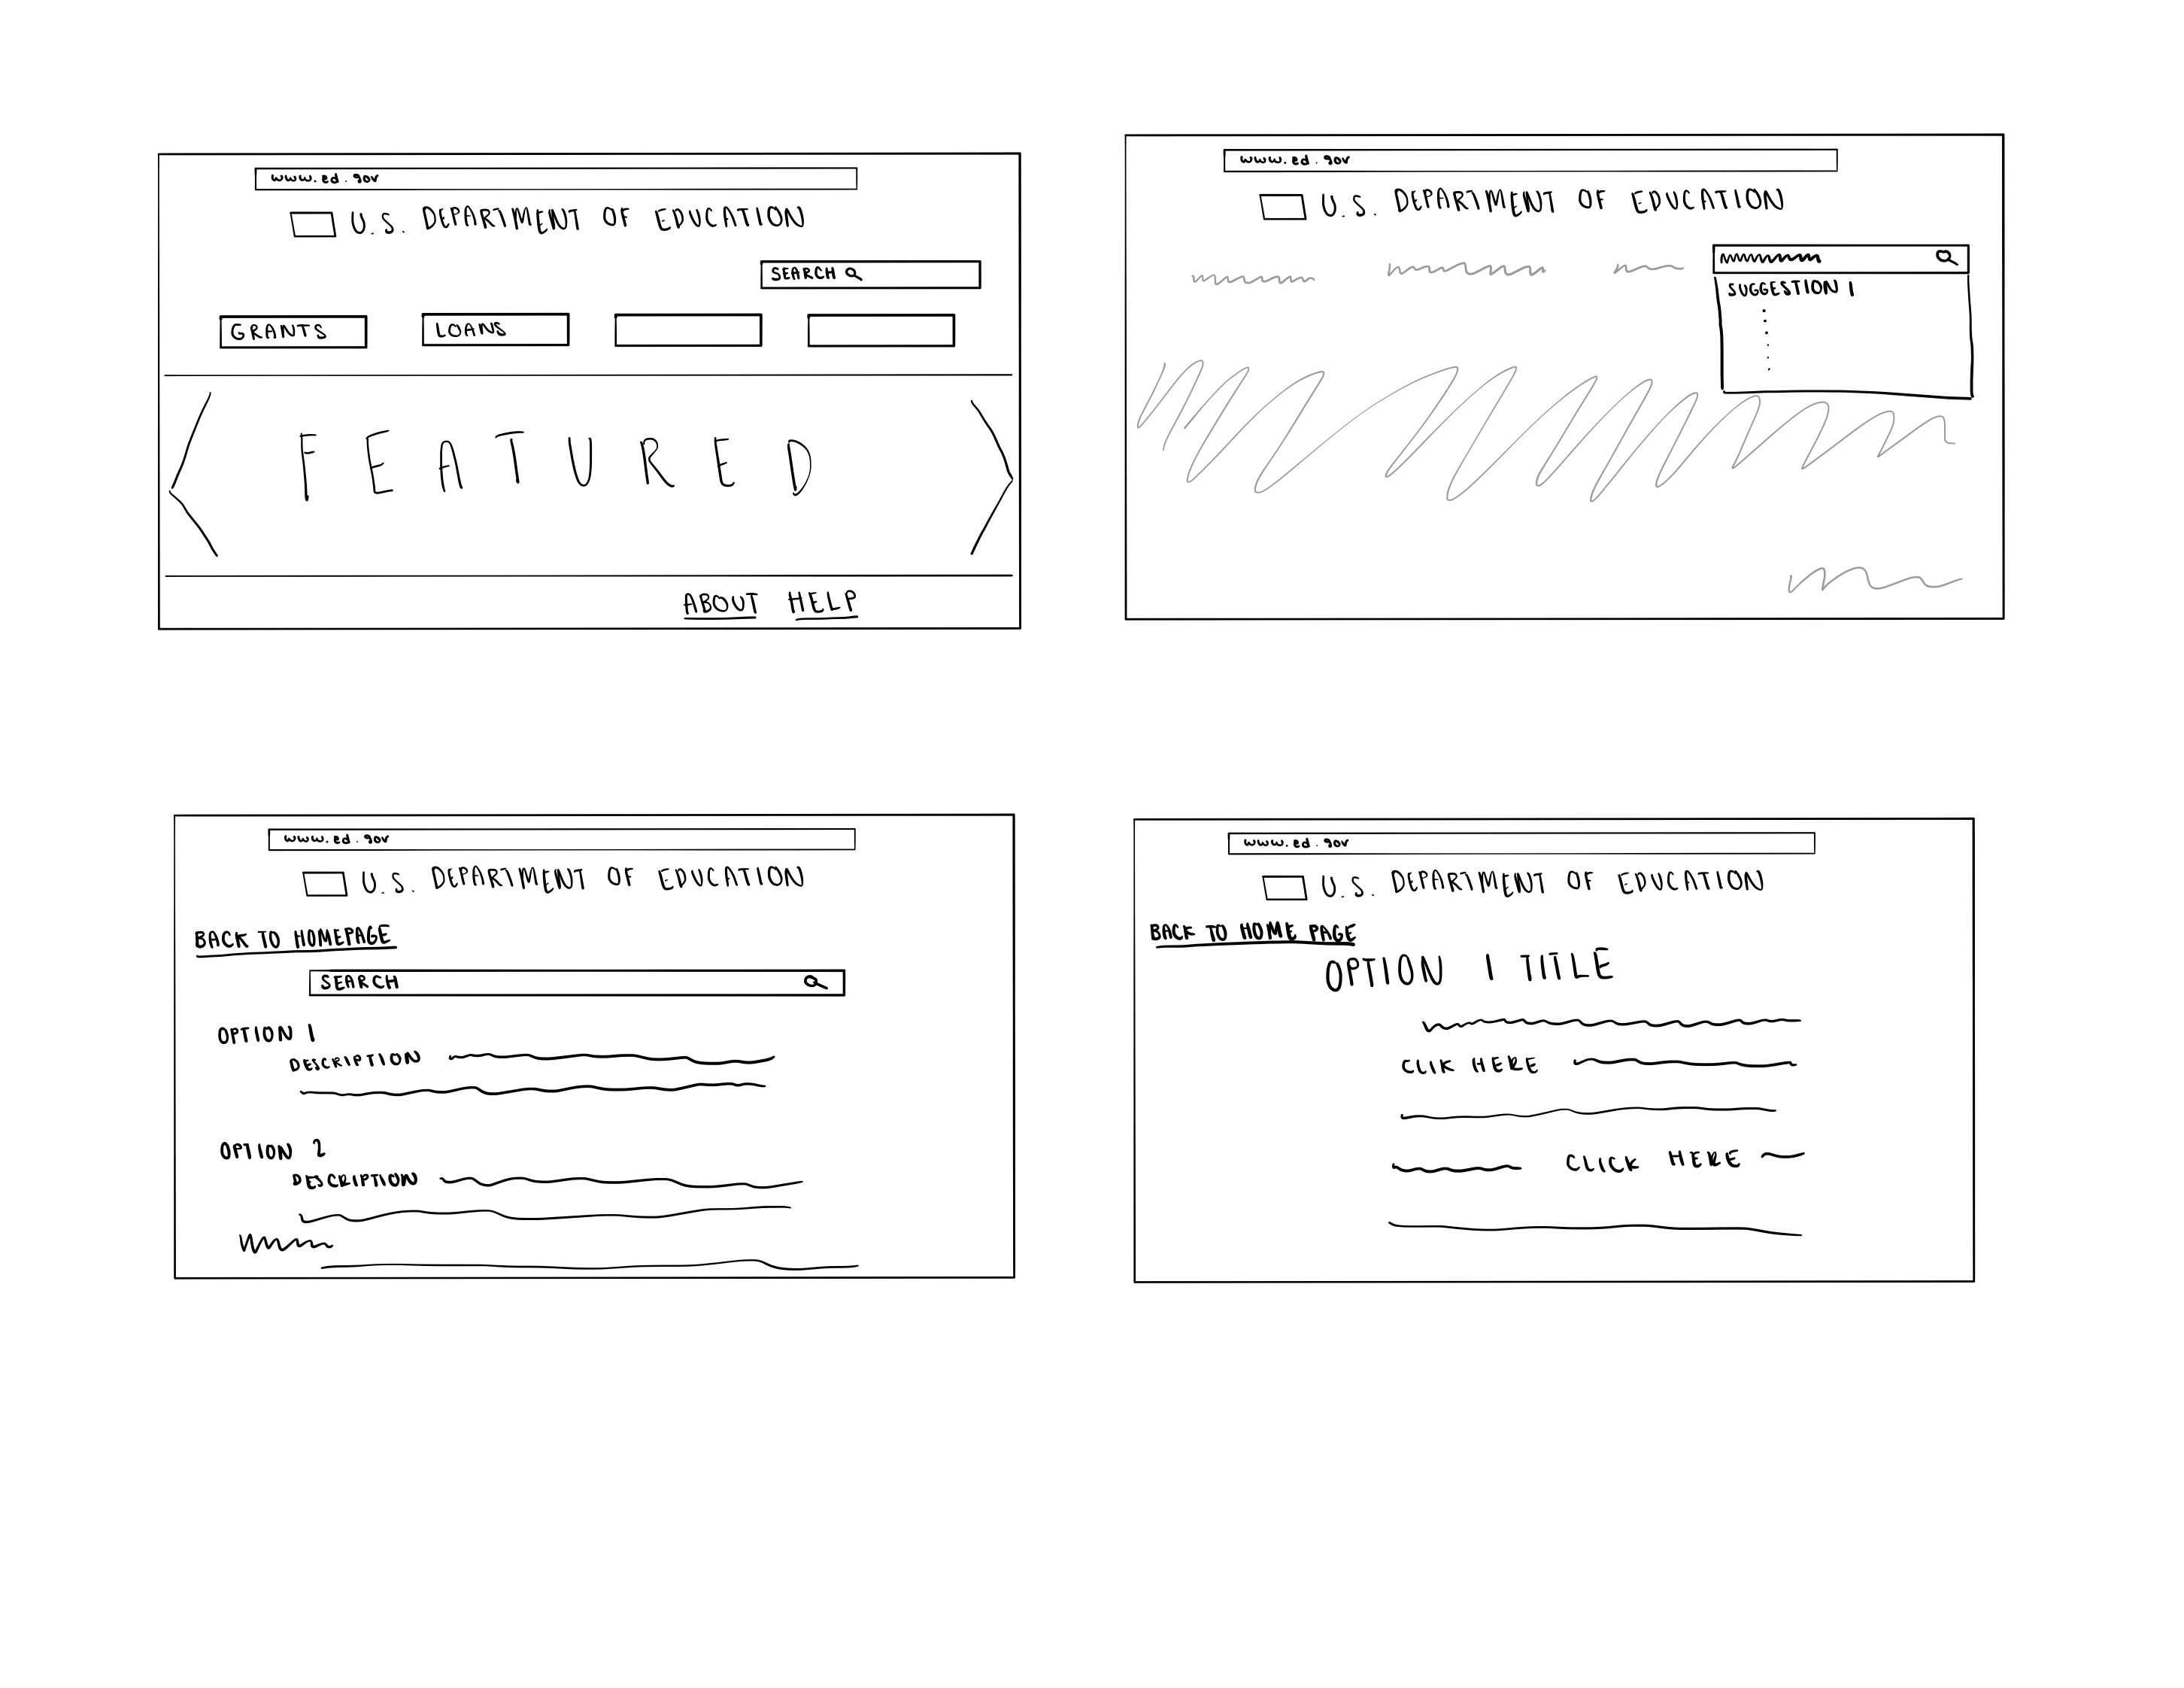 www.ed.gov
U.S. DEPARTMENT OF EDUCATION
SEARCH
GRANTS LOANS
FEATURED
ABOUT HELP
www.ed.gov
U.S. DEPARTMENT OF EDUCATION
SUGGESTION 1
www.ed.gov
U.S. DEPARTMENT OF EDUCATION
BACK TO HOMEPAGE
SEARCH
OPTION 1
DESCRIPTION
OPTION 2
DESCRIPTION
www.ed.gov
U.S. DEPARTMENT OF EDUCATION
BACK TO HOME PAGE
OPTION 1 TITLE
CLIK HERE
CLICK HERE